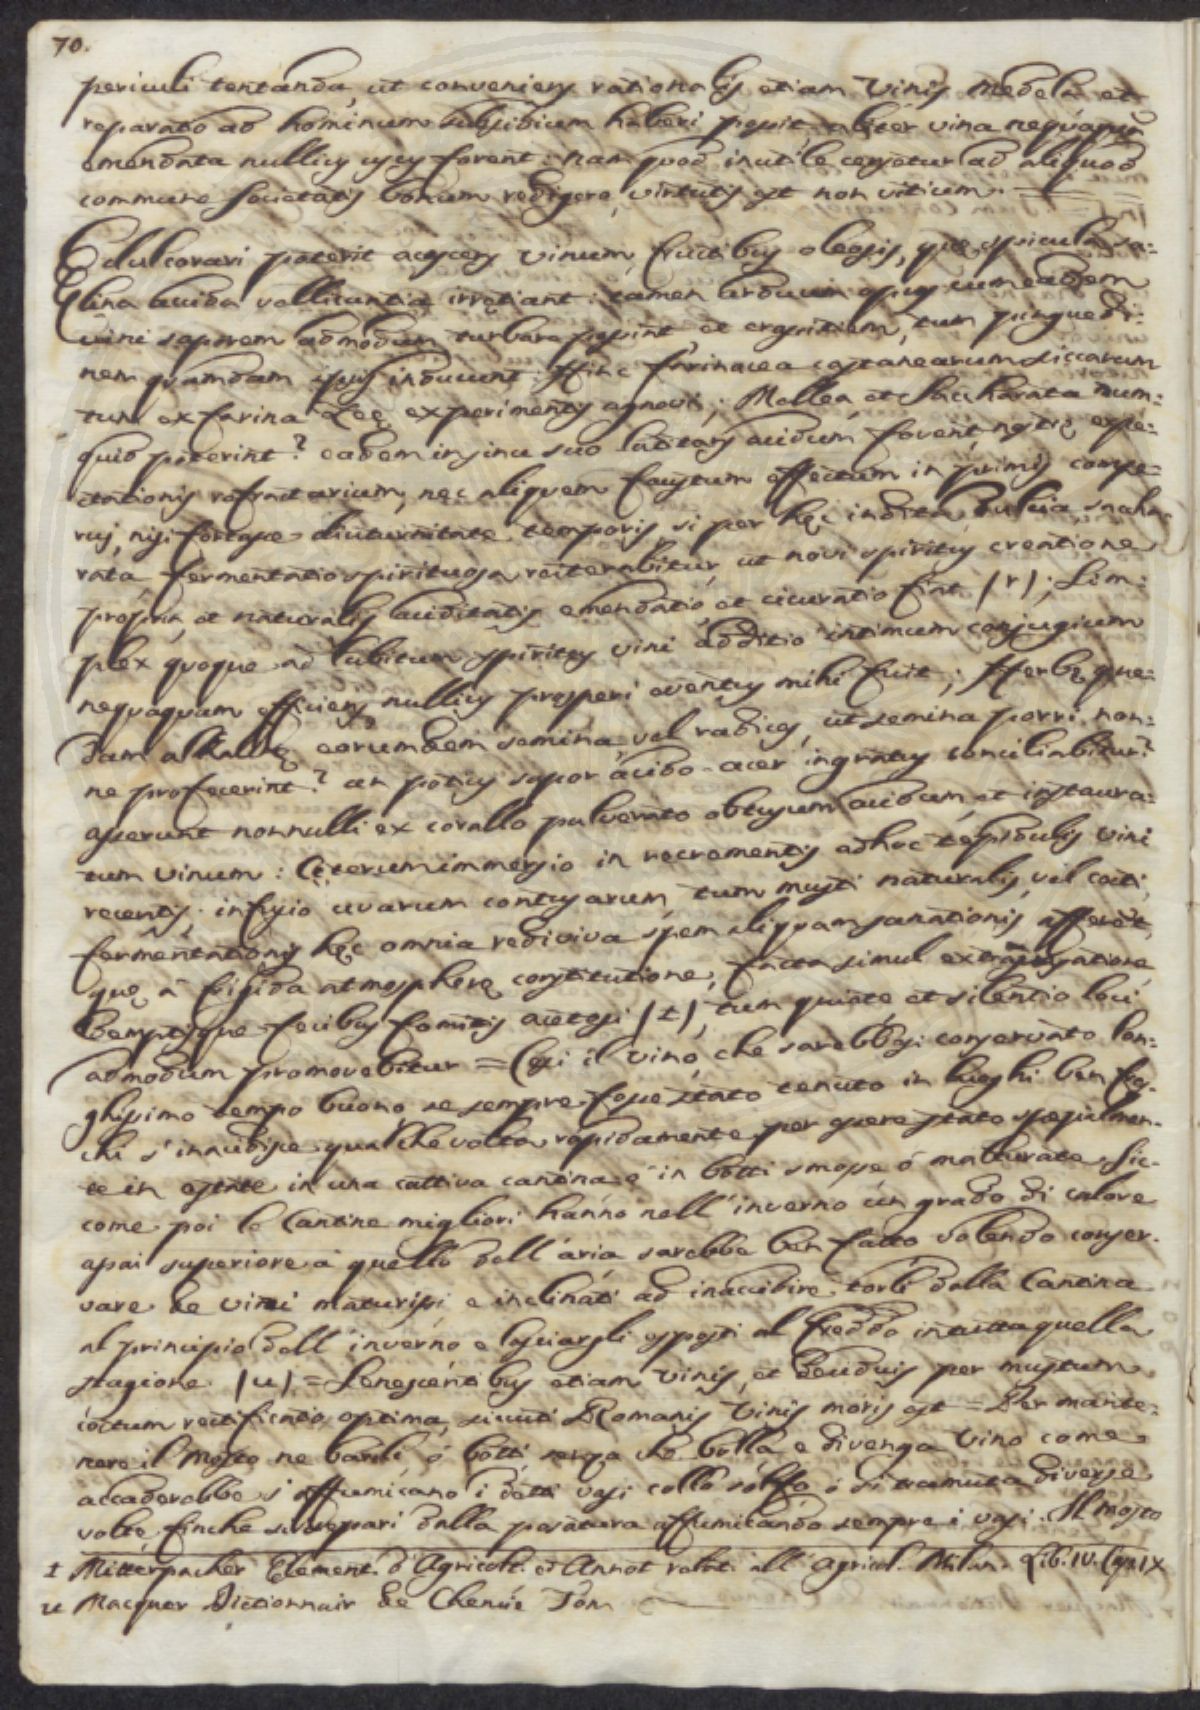 70.
periculi tentanda, ut conveniens rationalis etiam Vinis Medela et
reparatio ad hominum subsidium haberi possit aliter vina nequaquam
emendata nullius usus forent: nam quod inutile censetur ad aliquod
commune societatis bonum redigere, virtutis est non vitium. =
Edulcorari poterit acescens Vinum fructibus oleosis, quę spicula sa-
lina acida vellicantia irrętiant: tamen arduum opus cum eadem
vini saporem admodum turbare possint, et crassitiem, tum pinguedi-
nem quamdam ipsis inducunt: Hinc farinacea castanearum siccarum
tum ex farina experimentis agnovi; Mellea, et Saccharata num-
quid poterint? eadem in sinu suo latitans acidum forent nostrę expe-
ctationis refractarium, nec aliquem faustum effectum in primis compe-
ruj, nisi fortasse diuturnitate temporis, si per hęc indita dulcia, sacha-
rata, fermentatio spirituosa reiterabitur, ut novi spiritus creatione
propria, et naturalis aciditatis emendatio, et cicuratio fiat (r); Sim-
plex quoque ad lubitum spiritus vini additio intimum conjugium
nequaquam efficiens nullius prosperi eventus mihi fuit; Herbę quę-
dam alkalinę earumdem semina, vel radices, ut semina porri non-
ne profecerint? an potius sapor acido-acer ingratus conciliabitur?
asserunt nonnulli ex corallo pulverato obtusum acidum, et instaura-
tum vinum: Cęterum immersio in recrementis adhuc tepidulis vini
recentis, infusio uvarum contusarum, tum musti naturalis, vel cocti,
fermentationis hęc omnia rediviva spem aliquam sanationis afferet,
quę à frigida atmospherę constitutione, facta simul
demptisque fecibus fomitis acetosi (t), tum quiete et silentio loci
admodum promovebitur = Così il vino, che sarebbesi conservato lon-
ghissimo tempo buono, se sempre fosse stato tenuto in luoghi ben fres-
chi s'inacidisce qualche volta rapidamente per essere stato spezialmen-
te in estate in una cattiva cantina, e in botti smosse ò mal turate. Sic-
come poi le Cantine migliori hanno nell'inverno un grado di calore
assai superiore a quello dell'aria, sarebbe ben fatto volendo conser-
vare de vini maturissi e inclinati ad inacidire torli dalla Cantina
al principio dell'inverno e lasciargli esposti al freddo in tutta quella
stagione. (u) = Senescentibus etiam Vinis, et deciduis per mustum
coctum rectificatio optima, sicuti Romanis Vinis moris est = Per mante-
nere il Mosto ne barili ò botti, senza che bolla, e divenga Vino come
accaderebbe s'affumicano i detti vasi collo solfo, ò si tramuta diverse
volte finche si separi dalla posatura affumicando sempre i vasi. Il Mosto
t Mitterpacher Element. d'Agricolt. ed Annot. relat. all'Agricol. Milan. Lib. IV. Cap. IX
u Macquer Dictionnair de Chemie Tom.